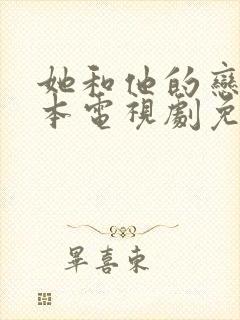 她和他的戀
本電視劇免
畢喜東